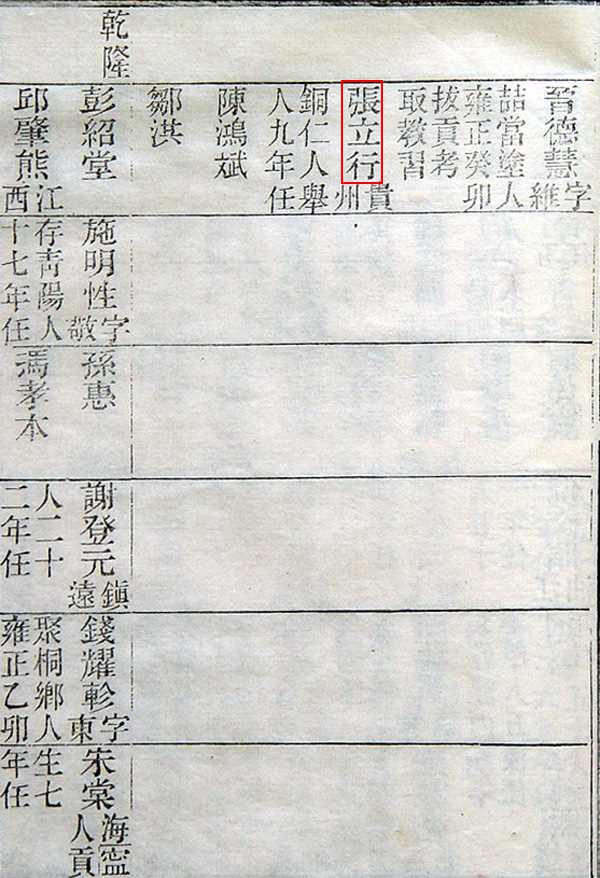 德慧字維
喆當塗人
雍正癸卯
拔貢考
取教習
張立行貴州
銅仁人舉
人九年任
陳鴻斌
鄒淇
乾隆
彭紹堂
邱肇熊江西
施明性字敬
存青陽人
十七年任
孫惠
馮孝本
謝登元鎮遠
人二十
二年任
錢耀軫字東
聚桐鄉人
雍正乙卯
宋棠海寧人貢
生七
年任